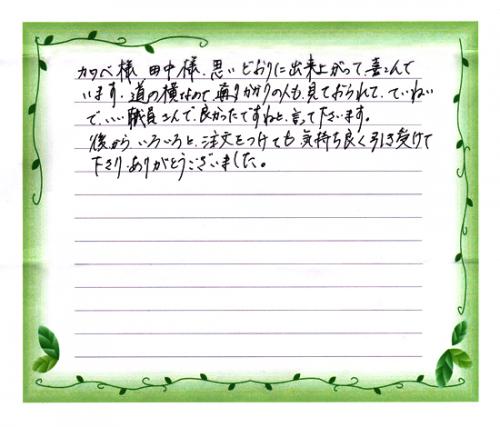 カワベ様 田中様、思いどおりに出来上がって、喜こんで
います。道の横なので、通りがかりの人も、見ておられて、ていねい
で、いい職員さんで、良かったですねと、言って下さいます。
後から、いろいろと、注文をつけても、気持ち良く引き受けて
下さり、ありがとうございました。